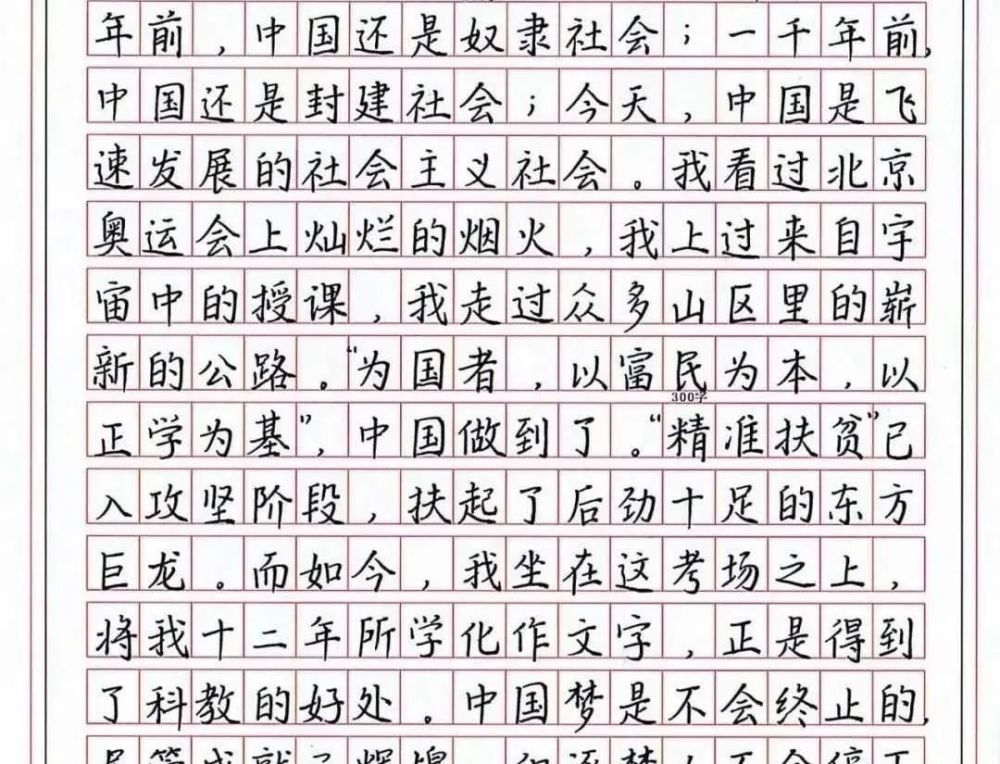 年前，中国还是奴隶社会；一千年前，
中国还是封建社会；今天，中国是飞
速发展的社会主义社会。我看过北京
奥运会上灿烂的烟火，我上过来自宇
宙中的授课，我走过众多山区里的崭
新的公路。“为国者，以富民为本，以
300字
正学为基”，中国做到了。“精准扶贫”已
入攻坚阶段，扶起了后劲十足的东方
巨龙。而如今，我坐在这考场之上，
将我十二年所学化作文字，正是得到
了科教的好处。中国梦是不会终止的，